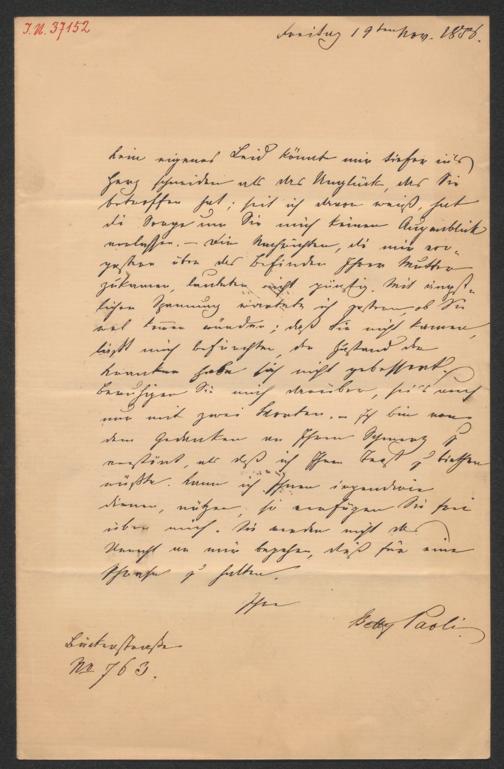 I.N. 37152
Freitag 19ten Nov. 1886.
Kein eigenes Leid könnte mir tiefer ins
Herz schneiden als das Unglück, das Sie
betroffen hat; seit ich davon weiß, hat
die Sorge um Sie mich keinen Augenblick
verlassen. – Die Nachrichten, die mir vor-
gestern über das Befinden Ihrer Mutter
zukamen, lauteten nicht günstig. Mit ängst-
licher Spannung erwartete ich gestern, ob Sie
kommen würden; daß Sie nicht kamen,
läßt mich befürchten, der Zustand der
Kranken habe sich nicht gebessert.
Beruhigen Sie mich darüber, sei's auch
nur mit zwei Worten. – Ich bin von
dem Gedanken an Ihren Schmerz zu
verstört, als daß ich Ihnen Trost zu bieten
wüßte. Kann ich Ihnen irgendwie
dienen, nützen, so verfügen Sie frei
über mich. Sie werden nicht das
Unrecht an mir begehen, dieß für eine
Phrase zu halten.
Ihre
Betty Paoli
Bäckerstraße
No 763.